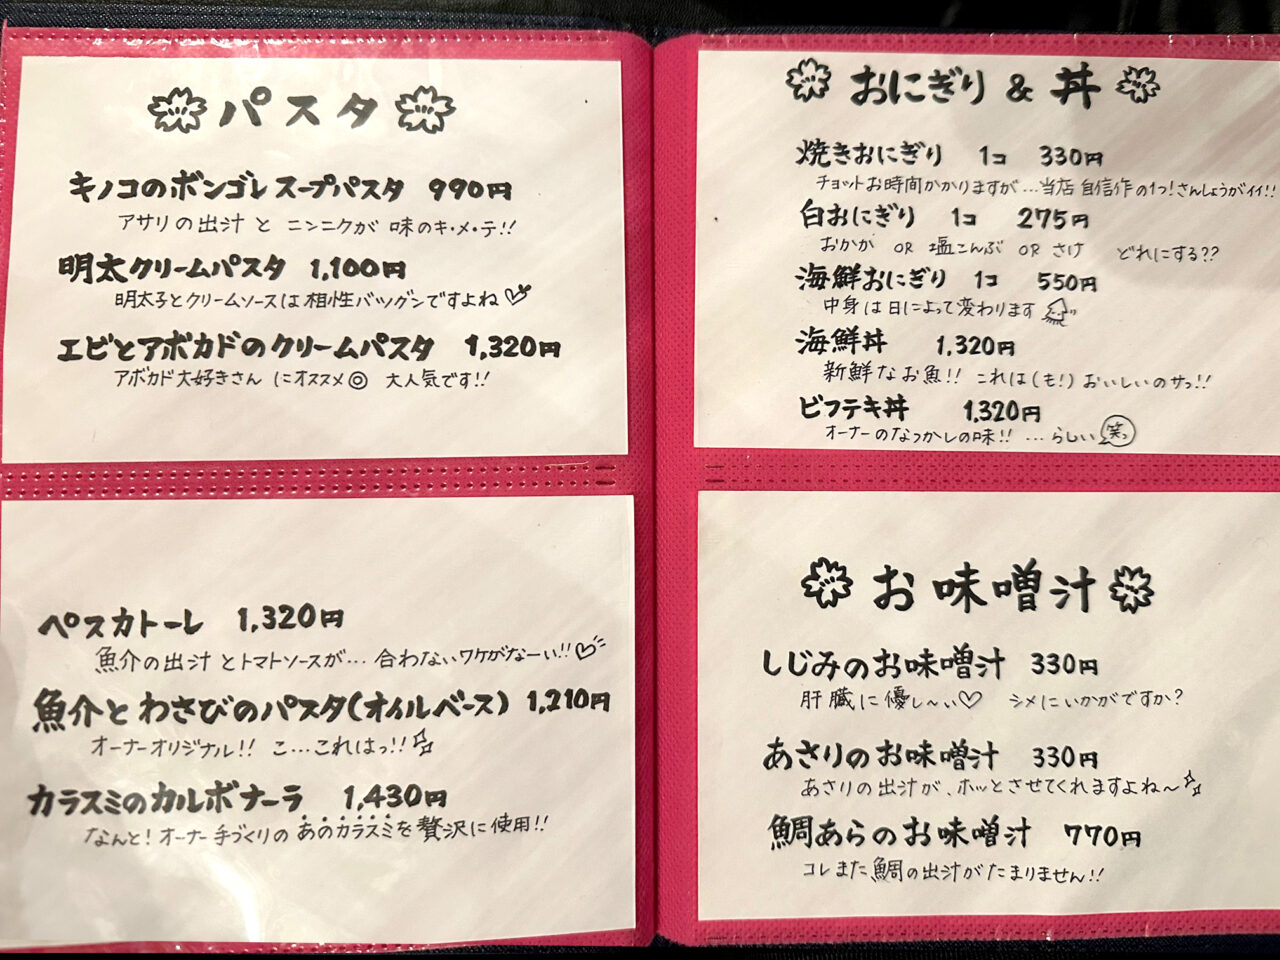 パスタ
キノコのボンゴレスープパスタ 990円
アサリの出汁と ニンニクが 味のキ・メ・テ!!
明太クリームパスタ 1,100円
明太子とクリームソースは相性バツグンですよね
エビとアボカドのクリームパスタ 1,320円
アボカド大好きさん にオススメ◎ 大人気です!!
ペスカトーレ 1,320円
魚介の出汁とトマトソースが… 合わないワケがなーい!!
魚介とわさびのパスタ(オイルベース) 1,210円
オーナーオリジナル!! こ…これはっ!!
カラスミのカルボナーラ 1,430円
なんと!オーナー手づくりの あのカラスミを贅沢に使用!!
おにぎり & 丼
焼きおにぎり 1コ 330円
チョットお時間かかりますが…当店自信作の1つ!さんしょうがイイ!!
白おにぎり 1コ 275円
おかか OR 塩こんぶ OR さけ どれにする??
海鮮おにぎり 1コ 550円
中身は日によって変わります
海鮮丼 1,320円
新鮮なお魚!! これは(も!)おいしいのサっ!!
ビフテキ丼 1,320円
オーナーのなつかしの味!! …らしい 笑っ
お味噌汁
しじみのお味噌汁 330円
肝臓に優し〜い♡ シメにいかがですか?
あさりのお味噌汁 330円
あさりの出汁が、ホッとさせてくれますよね〜
鯛あらのお味噌汁 770円
コレまた鯛の出汁がたまりません!!